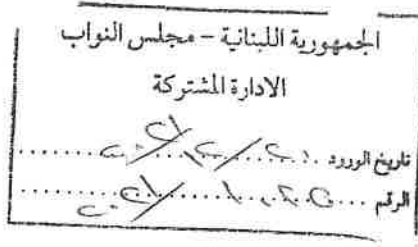 الجمهورية اللبنانية – مجلس النواب
الادارة المشتركة
تاريخ الورود
الرقم